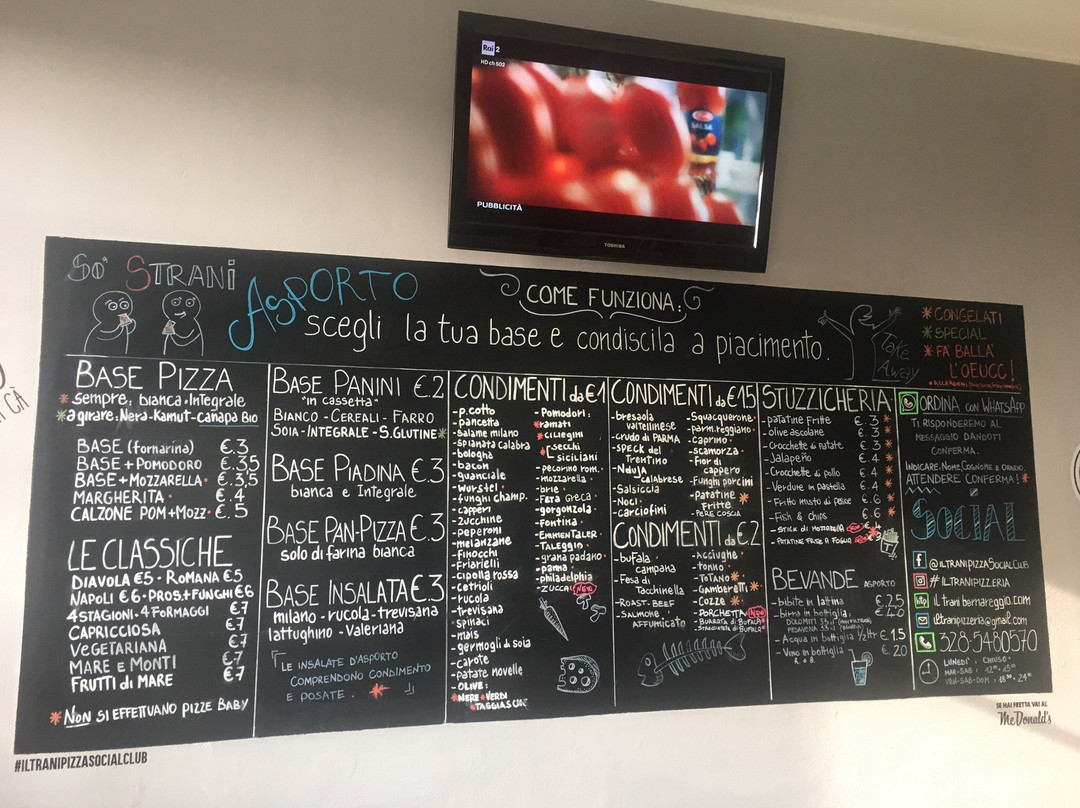 Rai 2
HD ch 502
SALSA
PUBBLICITÀ
TOSHIBA
SO' STRANI
ASPORTO
COME FUNZIONA:
scegli la tua base e condiscila a piacimento.
Take
Away
*CONGELATI
*SPECIAL
*FA' BALLA'
L'OEUCC!
BASE PIZZA
*sempre: bianca • Integrale
*a girare: Nera-Kamut-canapa Bio
BASE (fornarina) €.3
BASE+POMODORO €.3,5
BASE+MOZZARELLA • €.3,5
MARGHERITA • €.4
CALZONE POM+MOZZ • €.5
LE CLASSICHE
DIAVOLA €5 - ROMANA €5
NAPOLI €6 - PROS.+FUNGHI €6
4STAGIONI-4FORMAGGI €7
CAPRICCIOSA €7
VEGETARIANA €7
MARE E MONTI €7
FRUTTI di MARE €7
*NON SI EFFETTUANO PIZZE BABY
BASE PANINI €.2
"in cassetta"
BIANCO - CEREALI - FARRO
SOIA - INTEGRALE - S.GLUTINE*
BASE PIADINA €.3
bianca e Integrale
BASE PAN-PIZZA €.3
solo di farina bianca
BASE INSALATA €.3
milano - rucola - trevisana
lattughino - Valeriana
LE INSALATE D'ASPORTO
COMPRENDONO CONDIMENTO
E POSATE. *
CONDIMENTI da €1
-p.cotto
-pancetta
-salame milano
-spianata calabra
-bologna
-bacon
-guanciale
-wurstel •
-funghi champ.
-capperi
-zucchine
-peperoni
-melanzane
-Finocchi
-Friarielli
-cipolla rossa
-cetrioli
-rucola
-trevisana
-spinaci
-mais
-germogli di soia
-carote
-patate novelle
-OLIVE:
*NERE *VERDI
*TAGGIASCHE
-Pomodori:
*ramati
*ciliegini
secchi
siciliani
-pecorino rom.
-mozzarella •
-brie •
-FETA GRECA •
-gorgonzola •
-Fontina •
-EMMENTALER •
-TALEGGIO •
-grana padano •
-panna •
-philadelphia
-ZUCCA NEW
CONDIMENTI da €1.5
-bresaola
valtellinese
-crudo di PARMA
-SPECK del
Trentino
-Nduja
calabrese
-Salsiccia
-Noci •
-carciofini
-Squacquerone •
-parm.reggiano •
-caprino •
-scamorza •
-Fior di
cappero
-Funghi porcini
-Patatine *
Fritte
-PERE COSCIA
CONDIMENTI da €2
-bufala •
campana
-Fesa di
Tacchinella
-ROAST-BEEF
-SALMONE
AFFUMICATO
-Acciughe •
-tonno •
-TOTANO •*
-Gamberetti •*
-Cozze •*
-PORCHETTA NEW
-BURRATA di BUFALA
-STRACCIATELLA di BUFALA
STUZZICHERIA
-patatine Fritte €.3 *
-olive ascolane €.3 *
-Crocchette di patate €.3 *
-Jalapeño €.4 *
-Crocchette di pollo €.4 *
-Verdure in pastella €.4 *
-Fritto misto di pesce €.6 *
-Fish & chips €.6 *
-STICK di MOZZARELLA €.4
-PATATINE FRITTE A FOGLIA
BEVANDE ASPORTO
-bibite in lattina €2,5
-birra in bottiglia
-Acqua in bottiglia 1/2 lt €1.5
-Vino in bottiglia €20
ORDINA con WHATSAPP
TI RISPONDEREMO AL
MESSAGGIO DANDOTI
CONFERMA.
INDICARE: NOME, COGNOME e ORARIO,
ATTENDERE CONFERMA! *
SOCIAL
f @ILTRANIPIZZASOCIALCLUB
# ILTRANIPIZZERIA
http il trani bernareggio.com
iltranipizzeria@gmail.com
328-5480570
LUNEDI' CHIUSO
SE HAI FRETTA VAI AL
McDonald's
#ILTRANIPIZZASOCIALCLUB